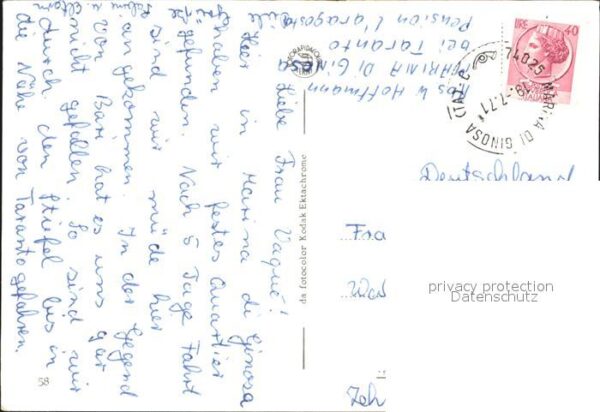 Abs. W. Hoffmann
MARINA DI GINOSA
bei Taranto
Pension L'aragosta
Liebe Frau Vaque!
Hier in Marina di Ginosa
haben wir festes Quartier
gefunden. Nach 5 Tage Fahrt
sind wir müde hier
angekommen. In der Gegend
von Bari hat es uns gar
nicht gefallen. So sind wir
durch den Stiefel bis in
die Nähe von Taranto gefahren.
58
da fotocolor Kodak Ektachrome
LIRE 40
74025 MARINA DI GINOSA (TA)
18.-7.71
Deutschland
Fra
privacy protection
Datenschutz